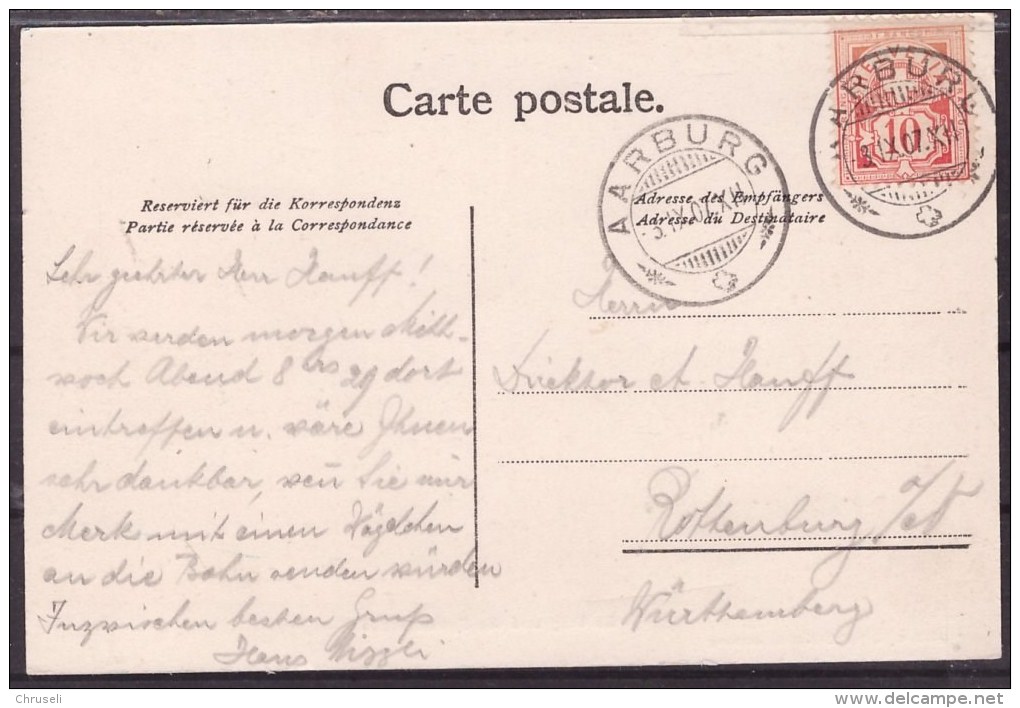 Carte postale.
AARBURG
3.IX.07.XII
AARBURG
3.IX.07.XII
FRANCO
10
Reserviert für die Korrespondenz
Partie réservée à la Correspondance
Adresse des Empfängers
Adresse du Destinataire
Sehr geehrter Herr Hauff!
Wir werden morgen Mitt-
woch Abend 8 Urs 29 dort
eintreffen u. wäre Ihnen
sehr dankbar, wen Sie mir
Merk mit einen Wägelchen
an die Bahn senden würden
Inzwischen besten Gruß
Hans
Herrn
Direktor A. Hauff
Rottenburg a/N
Württemberg
Chruseli
delcampe.net